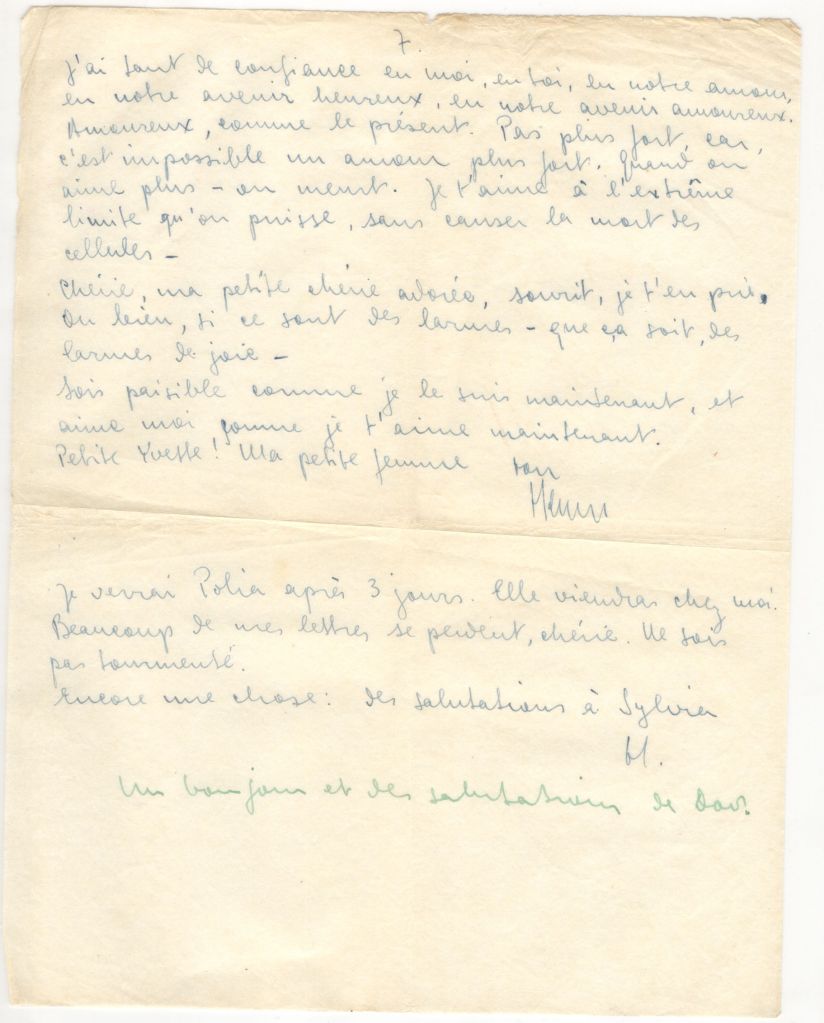 7.
J'ai tant de confiance en moi, en toi, en notre amour,
en notre avenir heureux, en notre avenir amoureux.
Amoureux, comme le présent. Pas plus fort, car,
c'est impossible un amour plus fort. Quand on
aime plus – on meurt. Je t'aime à l'extrême
limite qu'on puisse, sans causer la mort des
cellules –
Chérie, ma petite chérie adorée, sourit, je t'en prie.
Ou bien, si ce sont des larmes – que ça soit, des
larmes de joie –
Sois paisible comme je le suis maintenant, et
aime moi comme je t'aime maintenant.
Petite Yvette! Ma petite femme ton
Je verrai Polia après 3 jours. Elle viendras chez moi.
Beaucoup de mes lettres se perdent, chérie. Ne sois
pas tourmenté.
Encore une chose: des salutations à Sylvia
H.
Un bonjour et des salutations de Dov.